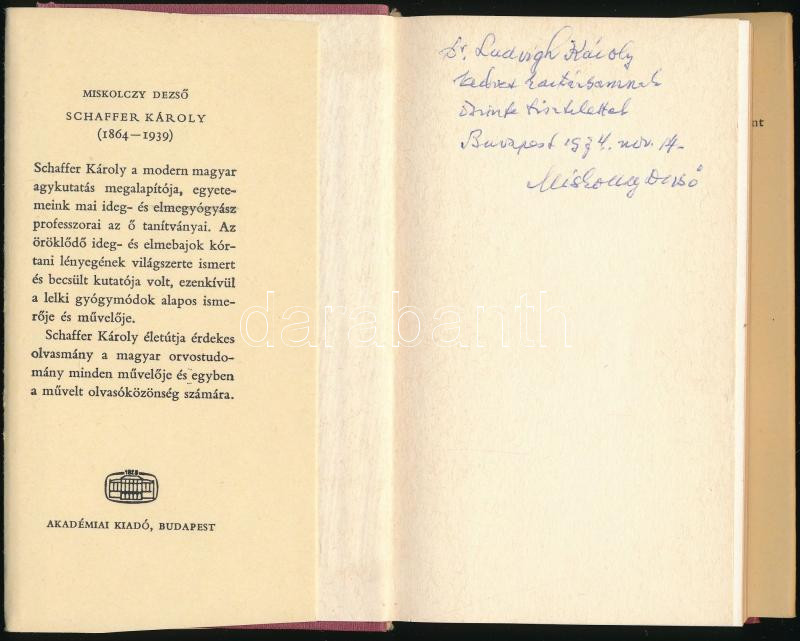 MISKOLCZY DEZSŐ
SCHAFFER KÁROLY
(1864—1939)
Schaffer Károly a modern magyar
agykutatás megalapítója, egyete-
meink mai ideg- és elmegyógyász
professzorai az ő tanítványai. Az
öröklődő ideg- és elmebajok kór-
tani lényegének világszerte ismert
és becsült kutatója volt, ezenkívül
a lelki gyógymódok alapos isme-
rője és művelője.
Schaffer Károly életútja érdekes
olvasmány a magyar orvostudo-
mány minden művelője és egyben
a művelt olvasóközönség számára.
1828
AKADÉMIAI KIADÓ, BUDAPEST
Dr. Ludvigh Károly
kedves kartársamnak
őszinte tisztelettel
Budapest 1974. nov. 14.
Miskolczy Dezső
nt
darabanth